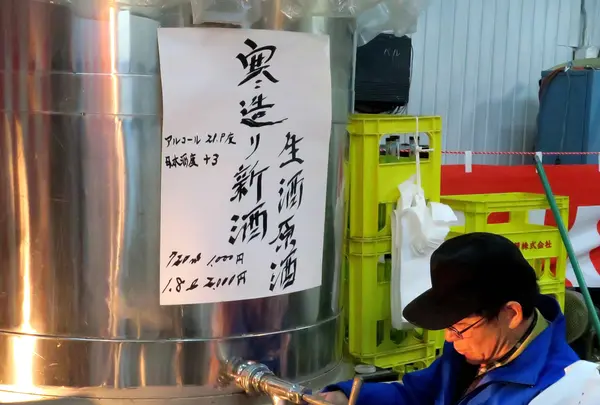 寒造り新酒
生酒原酒
アルコール 21.9度
日本酒度 +3
720ml 1,000円
1.8ℓ 2,000円
株式会社